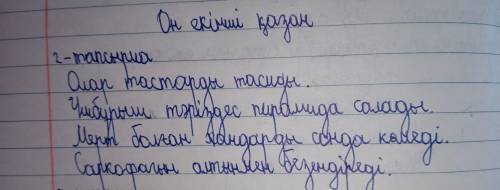 Он екінші қазан
2-тапсырма
Олар тастарды тасиды.
Үшбұрыш тәріздес пирамида салады.
Мерт болған жандарды сонда көмеді.
Саркофагын алтынмен безендіреді.